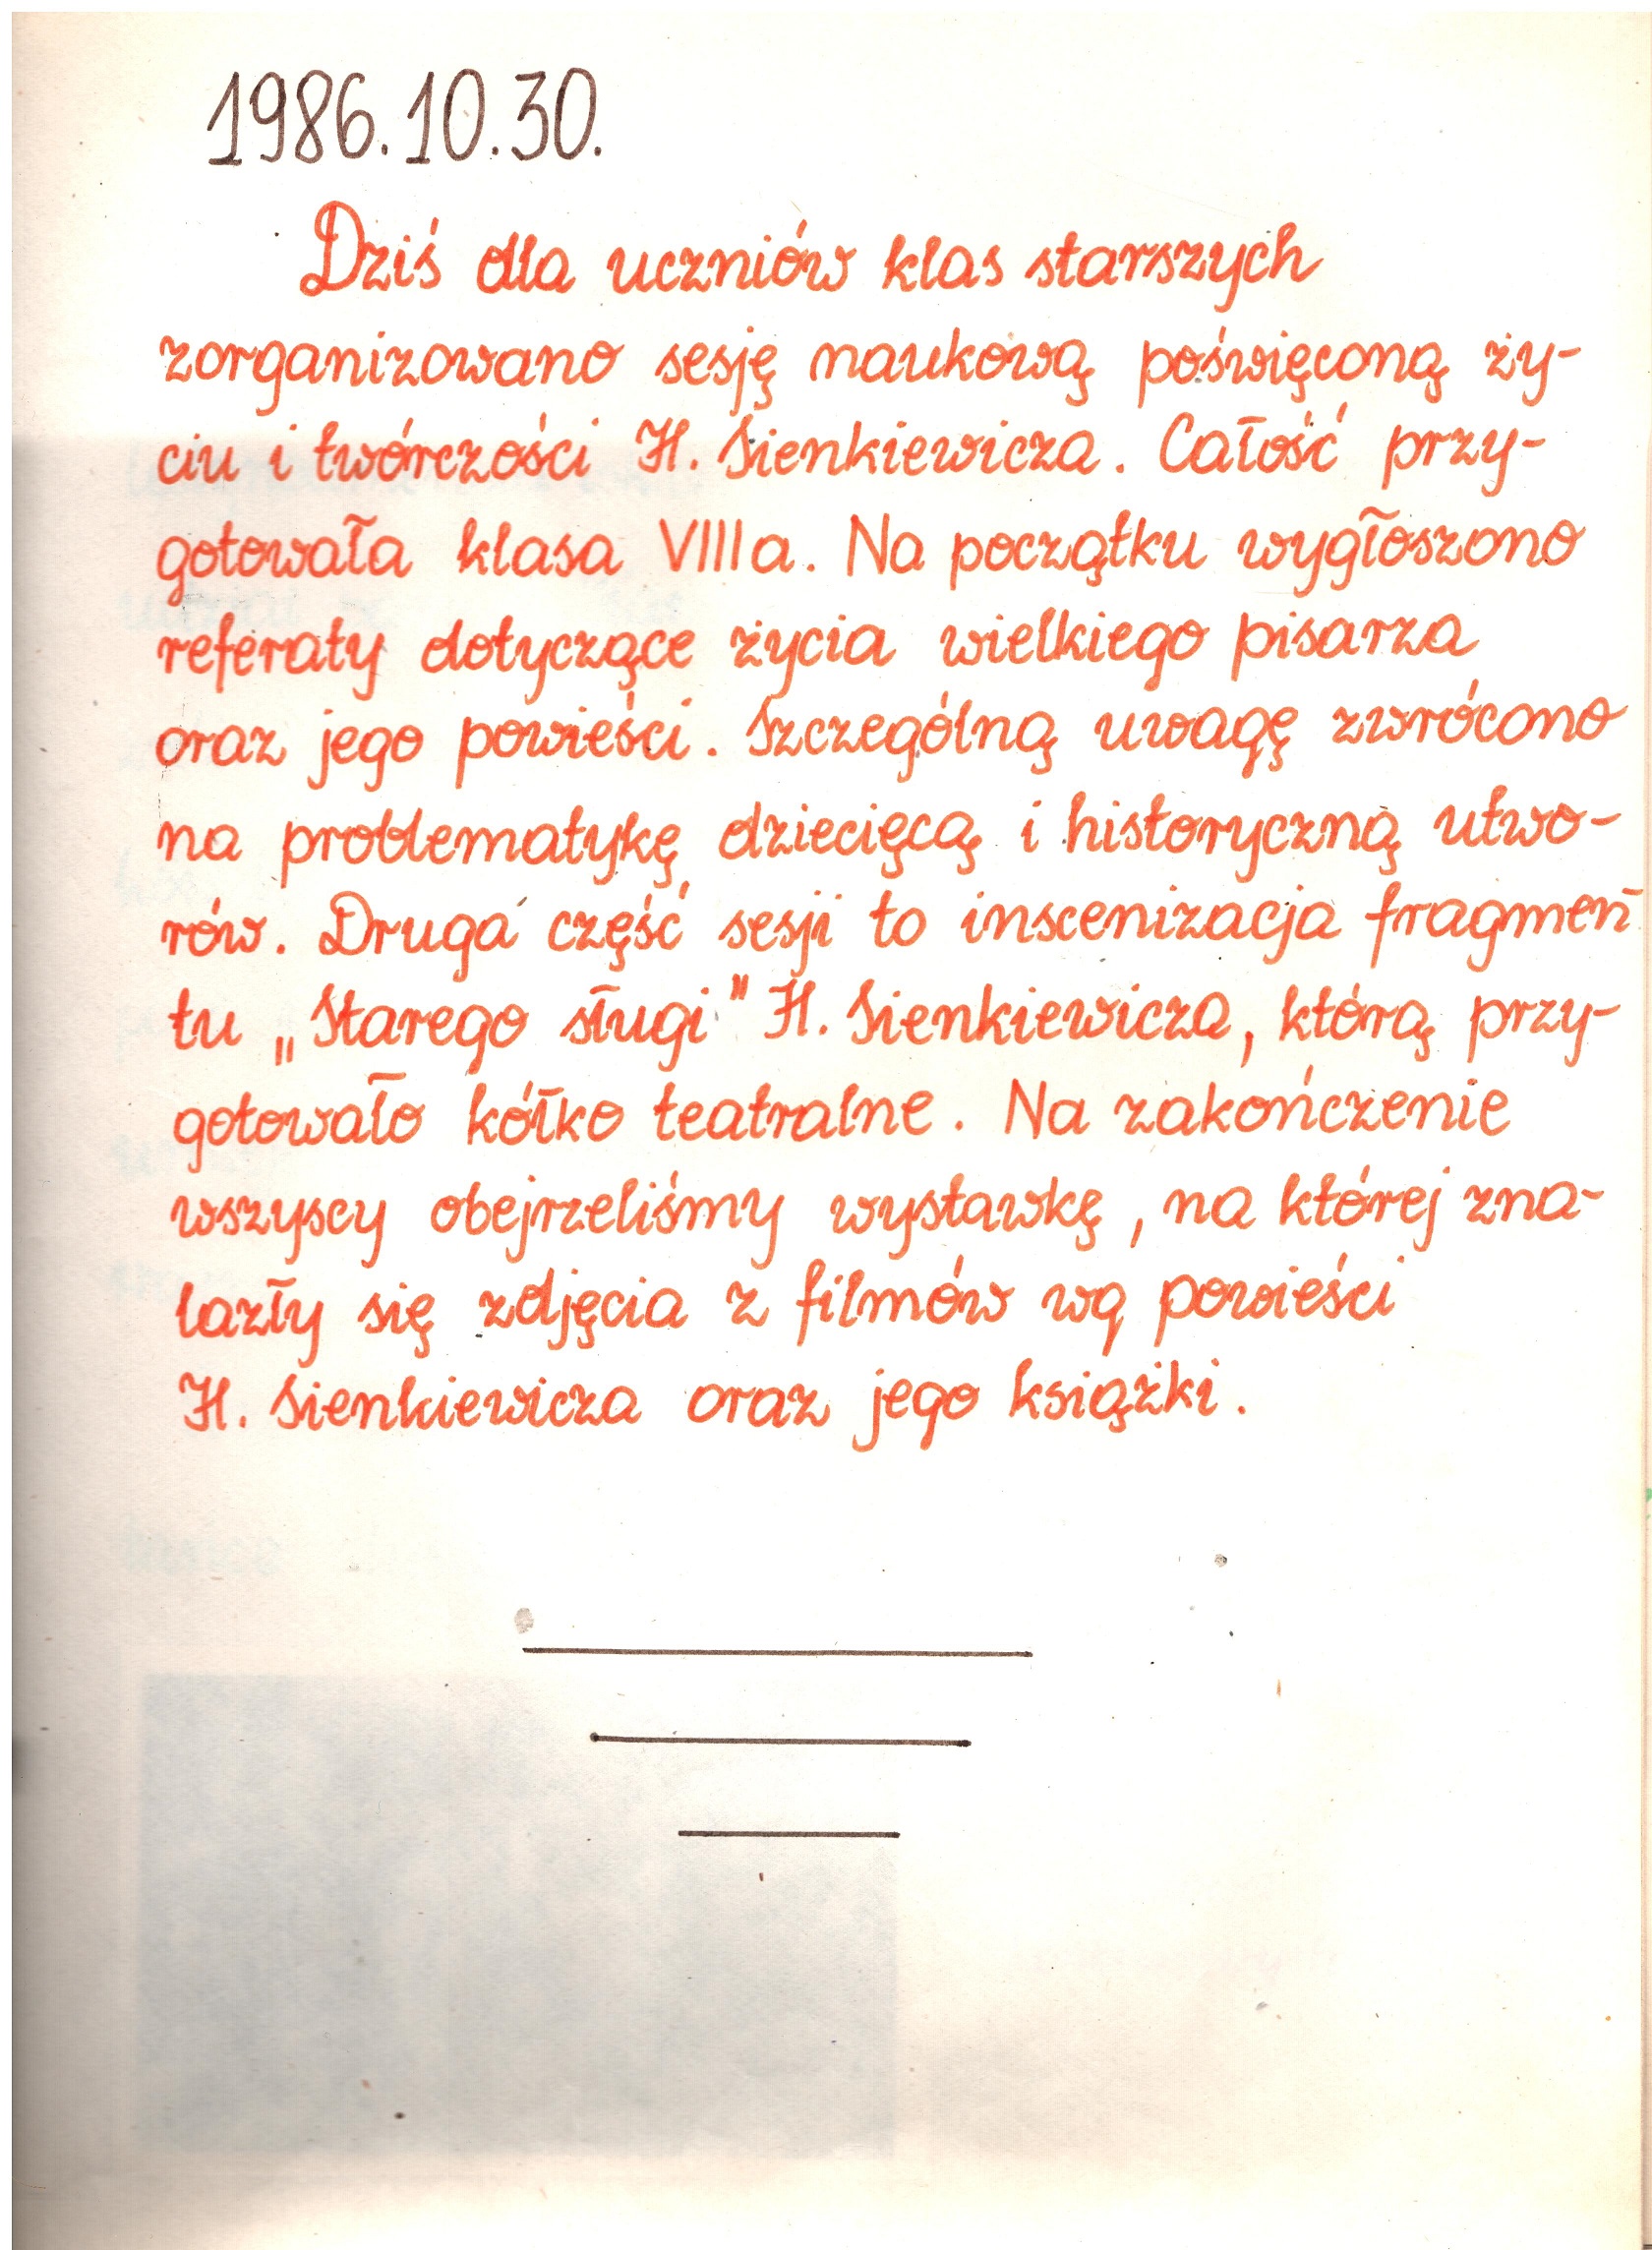 1986.10.30.
Dziś dla uczniów klas starszych
zorganizowano sesję naukową poświęconą ży-
ciu i twórczości H. Sienkiewicza. Całość przy-
gotowała klasa VIII a. Na początku wygłoszono
referaty dotyczące życia wielkiego pisarza
oraz jego powieści. Szczególną uwagę zwrócono
na problematykę dziecięcą i historyczną utwo-
rów. Druga część sesji to inscenizacja fragmen-
tu „Starego sługi" H. Sienkiewicza, którą przy-
gotowało kółko teatralne. Na zakończenie
wszyscy obejrzeliśmy wystawkę, na której zna-
lazły się zdjęcia z filmów wg powieści
H. Sienkiewicza oraz jego książki.